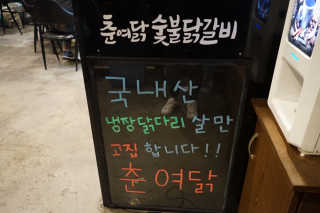 춘여닭 숯불닭갈비
국내산
냉장닭다리 살만
고집 합니다!!
춘여닭